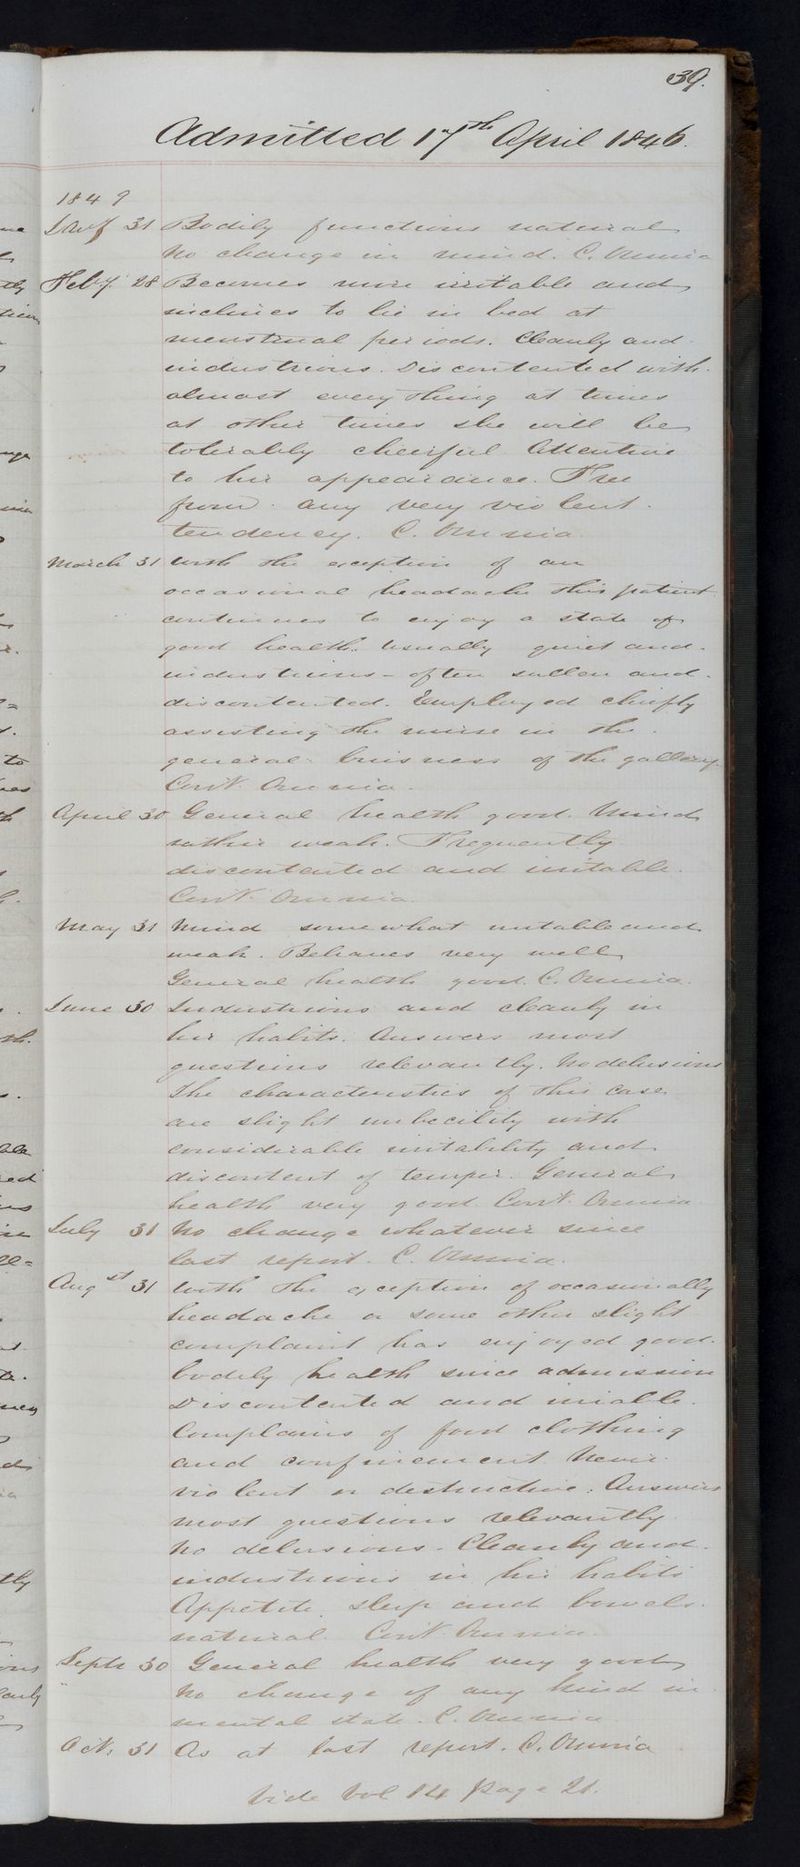 39.
Admitted 17th April 1846.
1849
Jany 31 Bodily functions natural
No change in mind. C. Omnia
Feby. 28 Becomes more irritable and
inclines to lie in bed at
menstrual periods. Cleanly and
industrious. Discontented with
almost everything at times
at other times she will be
tolerably cheerful Attentive
to her appearance. Free
from any very violent
tendency. C. Omnia
March 31 With the exception of an
occasional headache this patient
continues to enjoy a state of
good health. Usually quiet and
industrious - often sullen and
discontented. Employed chiefly
assisting the nurse in the
general buisness of the gallery
Cont. Omnia
April 30 General health good. Mind
rather weak. Frequently
discontented and irritable.
Cont. Omnia
May 31 Mind somewhat irritable and
weak. Behaves very well
General health good. C. Omnia.
June 30 Industrious and cleanly in
her habits. Answers most
questions relevantly. No delusions
The characteristics of this case
are slight imbecility with
considerable irritability and
discontent of temper. General
health very good. Cont. Omnia
July 31 No change whatever since
last report. C. Omnia.
Augst 31 With the exception of occasionally
headache or some other slight
complaint has enjoyed good
bodily health since admission
Discontented and iriable.
Complains of food clothing
and confinement. Never
violent or destructive. Answers
most questions relevantly
No delusions - Cleanly and
industrious in her habits
Appetite, sleep and bowels
natural. Cont. Omnia.
Septr 30 General health very good
No change of any kind in
mental state. C. Omnia
Oct. 31 As at last report. C. Omnia
Vide Vol 14 page 21.